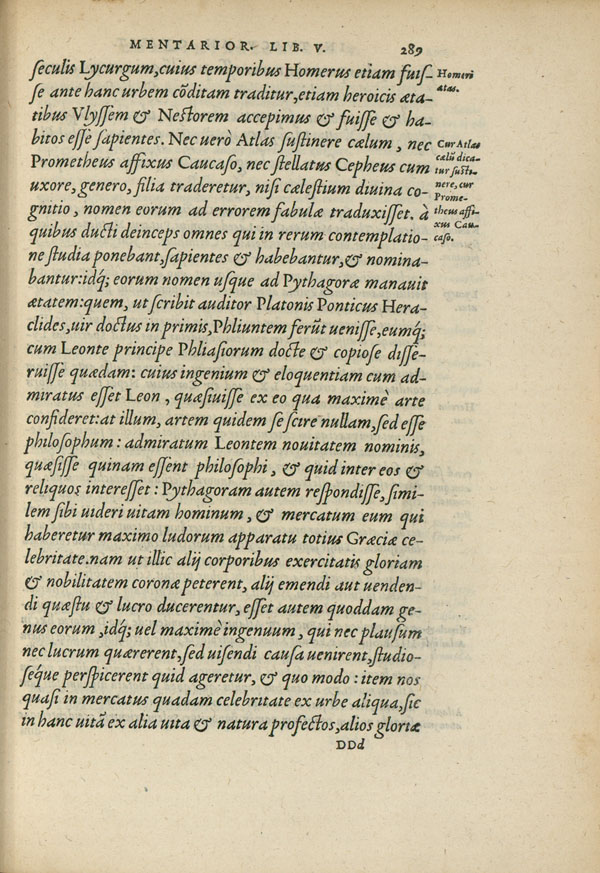 MENTARIOR. LIB. V. 289
seculis Lycurgum, cuius temporibus Homerus etiam fuis-
se ante hanc urbem cōditam traditur, etiam heroicis æta-
tibus Vlyssem & Nestorem accepimus & fuisse & ha-
bitos esse sapientes. Nec uerò Atlas sustinere cælum, nec
Prometheus affixus Caucaso, nec stellatus Cepheus cum
uxore, genero, filia traderetur, nisi cælestium diuina co-
gnitio, nomen eorum ad errorem fabulæ traduxisset. à
quibus ducti deinceps omnes qui in rerum contemplatio-
ne studia ponebant, sapientes & habebantur, & nomina-
bantur: idq́; eorum nomen usque ad Pythagoræ manauit
ætatem: quem, ut scribit auditor Platonis Ponticus Hera-
clides, uir doctus in primis, Phliuntem ferūt uenisse, eumq́;
cum Leonte principe Phliasiorum docte & copiose disse-
ruisse quædam: cuius ingenium & eloquentiam cum ad-
miratus esset Leon, quæsiuisse ex eo qua maximè arte
confideret: at illum, artem quidem se scire nullam, sed esse
philosophum: admiratum Leontem nouitatem nominis,
quæsisse quinam essent philosophi, & quid inter eos &
reliquos interesset: Pythagoram autem respondisse, simi-
lem sibi uideri uitam hominum, & mercatum eum qui
haberetur maximo ludorum apparatu totius Græciæ ce-
lebritate. nam ut illic alij corporibus exercitatis gloriam
& nobilitatem coronæ peterent, alij emendi aut uenden-
di quæstu & lucro ducerentur, esset autem quoddam ge-
nus eorum, idq́; uel maximè ingenuum, qui nec plausum
nec lucrum quærerent, sed uisendi causa uenirent, studio-
seq́ue perspicerent quid ageretur, & quo modo: item nos
quasi in mercatus quadam celebritate ex urbe aliqua, sic
in hanc uitā ex alia uita & natura profectos, alios gloriæ
DDd
Homeri
ætas.
Cur Atlas
cælū dica-
tur susti-
nere, cur
Prome-
theus affi-
xus Cau-
caso.